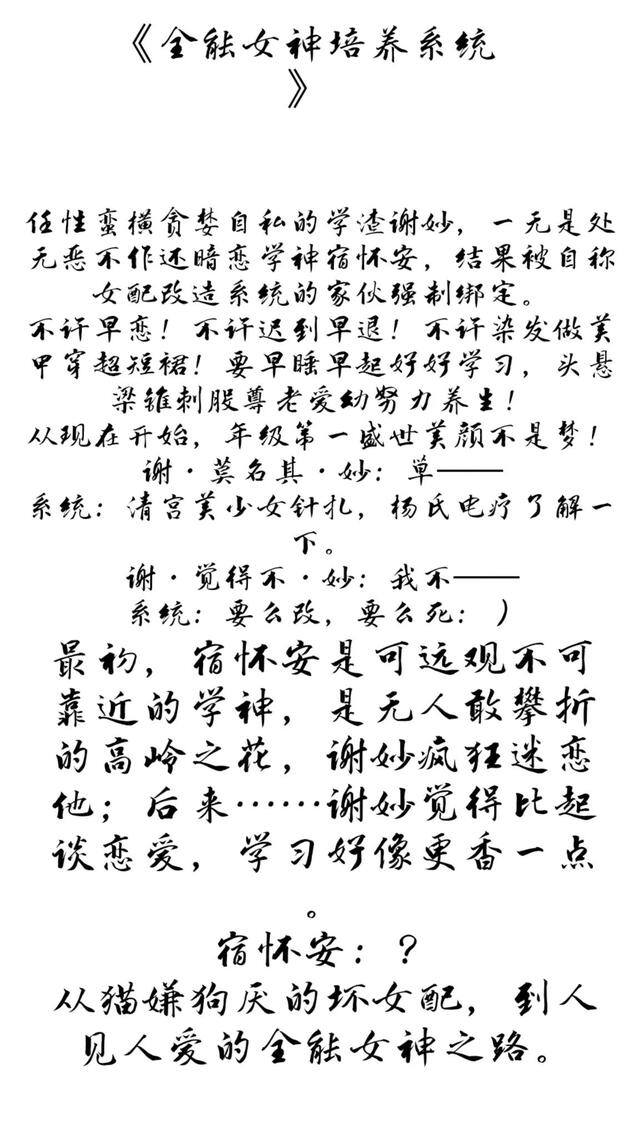 《全能女神培养系统
》
任性蛮横贪婪自私的学渣谢妙，一无是处
无恶不作还暗恋学神宿怀安，结果被自称
女配改造系统的家伙强制绑定。
不许早恋！不许迟到早退！不许染发做美
甲穿超短裙！要早睡早起好好学习，头悬
梁锥刺股尊老爱幼努力养生！
从现在开始，年级第一盛世美颜不是梦！
谢·莫名其·妙：草——
系统：清宫美少女针扎，杨氏电疗了解一
下。
谢·觉得不·妙：我不——
系统：要么改，要么死：）
最初，宿怀安是可远观不可
靠近的学神，是无人敢攀折
的高岭之花，谢妙疯狂迷恋
他；后来……谢妙觉得比起
谈恋爱，学习好像更香一点
。
宿怀安：？
从猫嫌狗厌的坏女配，到人
见人爱的全能女神之路。